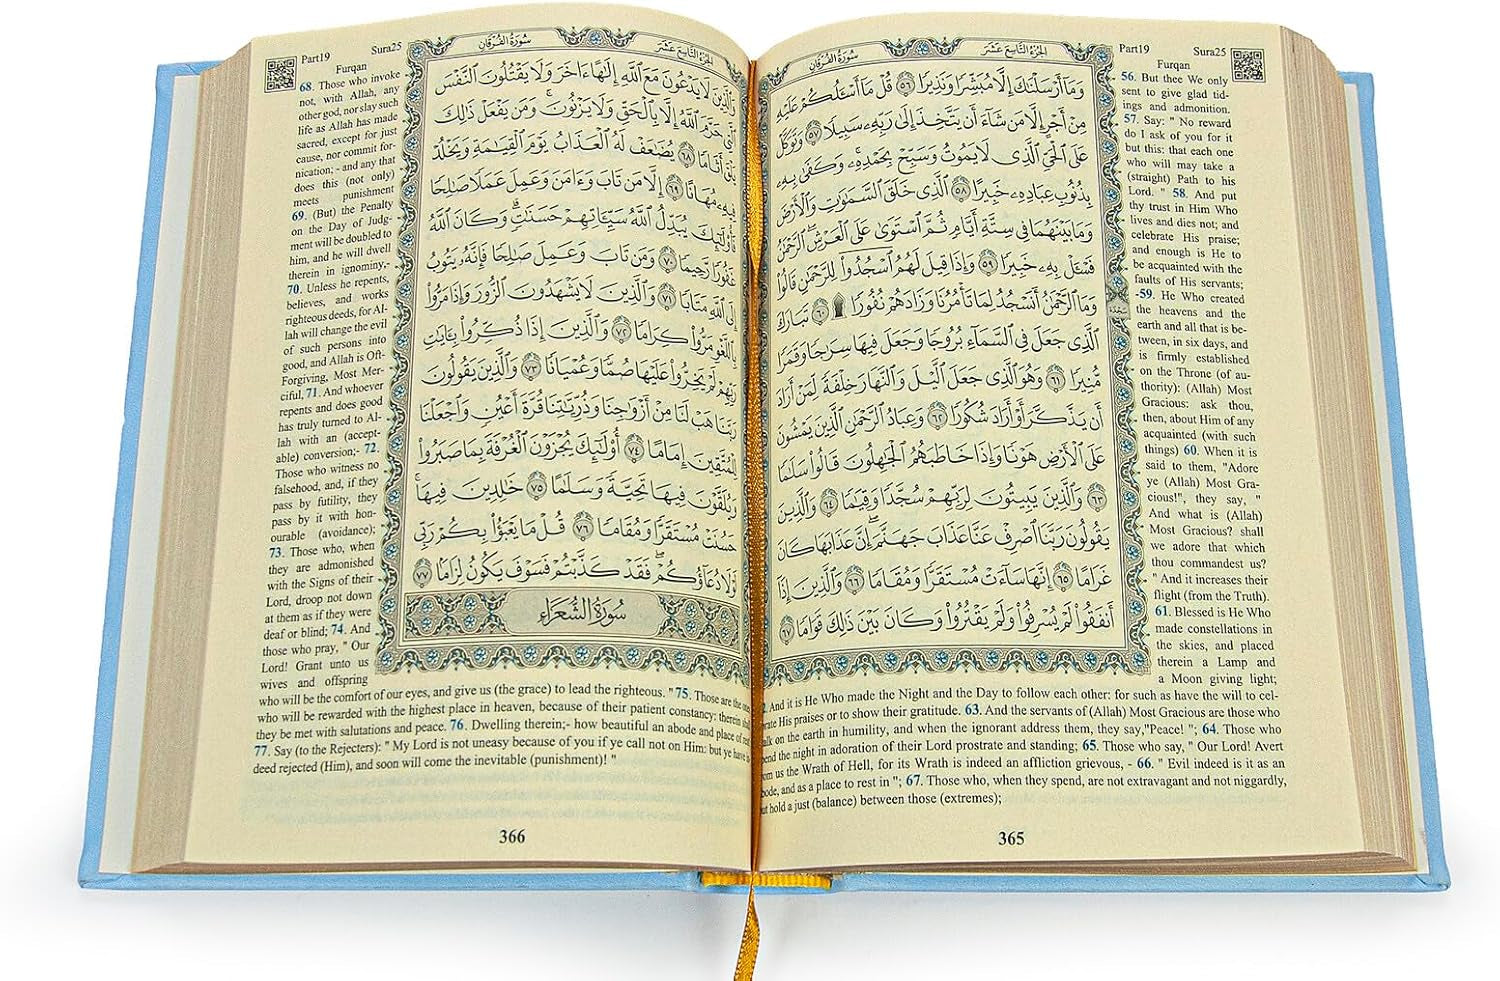 سُورَةُ الفُرْقَانِ
الجُزْءُ التَّاسِعَ عَشَرَ
وَمَآ أَرْسَلْنَٰكَ إِلَّا مُبَشِّرًا وَنَذِيرًا ٥٦ قُلْ مَآ أَسْـَٔلُكُمْ عَلَيْهِ
مِنْ أَجْرٍ إِلَّا مَن شَآءَ أَن يَتَّخِذَ إِلَىٰ رَبِّهِۦ سَبِيلًا ٥٧ وَتَوَكَّلْ
عَلَى ٱلْحَىِّ ٱلَّذِى لَا يَمُوتُ وَسَبِّحْ بِحَمْدِهِۦ وَكَفَىٰ بِهِۦ
بِذُنُوبِ عِبَادِهِۦ خَبِيرًا ٥٨ ٱلَّذِى خَلَقَ ٱلسَّمَٰوَٰتِ وَٱلْأَرْضَ
وَمَا بَيْنَهُمَا فِى سِتَّةِ أَيَّامٍ ثُمَّ ٱسْتَوَىٰ عَلَى ٱلْعَرْشِ ٱلرَّحْمَٰنُ
فَسْـَٔلْ بِهِۦ خَبِيرًا ٥٩ وَإِذَا قِيلَ لَهُمُ ٱسْجُدُوا۟ لِلرَّحْمَٰنِ قَالُوا۟
وَمَا ٱلرَّحْمَٰنُ أَنَسْجُدُ لِمَا تَأْمُرُنَا وَزَادَهُمْ نُفُورًا ۩ ٦٠ تَبَارَكَ
ٱلَّذِى جَعَلَ فِى ٱلسَّمَآءِ بُرُوجًا وَجَعَلَ فِيهَا سِرَٰجًا وَقَمَرًا
مُّنِيرًا ٦١ وَهُوَ ٱلَّذِى جَعَلَ ٱلَّيْلَ وَٱلنَّهَارَ خِلْفَةً لِّمَنْ أَرَادَ
أَن يَذَّكَّرَ أَوْ أَرَادَ شُكُورًا ٦٢ وَعِبَادُ ٱلرَّحْمَٰنِ ٱلَّذِينَ يَمْشُونَ
عَلَى ٱلْأَرْضِ هَوْنًا وَإِذَا خَاطَبَهُمُ ٱلْجَٰهِلُونَ قَالُوا۟ سَلَٰمًا
٦٣ وَٱلَّذِينَ يَبِيتُونَ لِرَبِّهِمْ سُجَّدًا وَقِيَٰمًا ٦٤ وَٱلَّذِينَ
يَقُولُونَ رَبَّنَا ٱصْرِفْ عَنَّا عَذَابَ جَهَنَّمَ إِنَّ عَذَابَهَا كَانَ
غَرَامًا ٦٥ إِنَّهَا سَآءَتْ مُسْتَقَرًّا وَمُقَامًا ٦٦ وَٱلَّذِينَ إِذَآ
أَنفَقُوا۟ لَمْ يُسْرِفُوا۟ وَلَمْ يَقْتُرُوا۟ وَكَانَ بَيْنَ ذَٰلِكَ قَوَامًا ٦٧
سجدة
Part19 Sura25
Furqan
56. But thee We only
sent to give glad tid-
ings and admonition.
57. Say: " No reward
do I ask of you for it
but this: that each one
who will may take a
(straight) Path to his
Lord. " 58. And put
thy trust in Him Who
lives and dies not; and
celebrate His praise;
and enough is He to
be acquainted with the
faults of His servants;
-59. He Who created
the heavens and the
earth and all that is be-
tween, in six days, and
is firmly established
on the Throne (of au-
thority): (Allah) Most
Gracious: ask thou,
then, about Him of any
acquainted (with such
things) 60. When it is
said to them, "Adore
ye (Allah) Most Gra-
cious!", they say, "
And what is (Allah)
Most Gracious? shall
we adore that which
thou commandest us?
" And it increases their
flight (from the Truth).
61. Blessed is He Who
made constellations in
the skies, and placed
therein a Lamp and
a Moon giving light;
And it is He Who made the Night and the Day to follow each other: for such as have the will to cel-
His praises or to show their gratitude. 63. And the servants of (Allah) Most Gracious are those who
on the earth in humility, and when the ignorant address them, they say,"Peace! "; 64. Those who
the night in adoration of their Lord prostrate and standing; 65. Those who say, " Our Lord! Avert
us the Wrath of Hell, for its Wrath is indeed an affliction grievous, - 66. " Evil indeed is it as an
and as a place to rest in "; 67. Those who, when they spend, are not extravagant and not niggardly,
hold a just (balance) between those (extremes);
365
سُورَةُ الفُرْقَانِ
الجُزْءُ التَّاسِعَ عَشَرَ
وَٱلَّذِينَ لَا يَدْعُونَ مَعَ ٱللَّهِ إِلَٰهًا ءَاخَرَ وَلَا يَقْتُلُونَ ٱلنَّفْسَ
ٱلَّتِى حَرَّمَ ٱللَّهُ إِلَّا بِٱلْحَقِّ وَلَا يَزْنُونَ ۚ وَمَن يَفْعَلْ ذَٰلِكَ
يَلْقَ أَثَامًا ٦٨ يُضَٰعَفْ لَهُ ٱلْعَذَابُ يَوْمَ ٱلْقِيَٰمَةِ وَيَخْلُدْ
فِيهِۦ مُهَانًا ٦٩ إِلَّا مَن تَابَ وَءَامَنَ وَعَمِلَ عَمَلًا صَٰلِحًا
فَأُو۟لَٰٓئِكَ يُبَدِّلُ ٱللَّهُ سَيِّـَٔاتِهِمْ حَسَنَٰتٍ ۗ وَكَانَ ٱللَّهُ
غَفُورًا رَّحِيمًا ٧٠ وَمَن تَابَ وَعَمِلَ صَٰلِحًا فَإِنَّهُۥ يَتُوبُ
إِلَى ٱللَّهِ مَتَابًا ٧١ وَٱلَّذِينَ لَا يَشْهَدُونَ ٱلزُّورَ وَإِذَا مَرُّوا۟
بِٱللَّغْوِ مَرُّوا۟ كِرَامًا ٧٢ وَٱلَّذِينَ إِذَا ذُكِّرُوا۟ بِـَٔايَٰتِ
رَبِّهِمْ لَمْ يَخِرُّوا۟ عَلَيْهَا صُمًّا وَعُمْيَانًا ٧٣ وَٱلَّذِينَ يَقُولُونَ
رَبَّنَا هَبْ لَنَا مِنْ أَزْوَٰجِنَا وَذُرِّيَّٰتِنَا قُرَّةَ أَعْيُنٍ وَٱجْعَلْنَا
لِلْمُتَّقِينَ إِمَامًا ٧٤ أُو۟لَٰٓئِكَ يُجْزَوْنَ ٱلْغُرْفَةَ بِمَا صَبَرُوا۟
وَيُلَقَّوْنَ فِيهَا تَحِيَّةً وَسَلَٰمًا ٧٥ خَٰلِدِينَ فِيهَا ۚ
حَسُنَتْ مُسْتَقَرًّا وَمُقَامًا ٧٦ قُلْ مَا يَعْبَؤُا۟ بِكُمْ رَبِّى
لَوْلَا دُعَآؤُكُمْ ۖ فَقَدْ كَذَّبْتُمْ فَسَوْفَ يَكُونُ لِزَامًا ٧٧
سُورَةُ الشُّعَرَاءِ
Part19 Sura25
Furqan
68. Those who invoke
not, with Allah, any
other god, nor slay such
life as Allah has made
sacred, except for just
cause, nor commit for-
nication; - and any that
does this (not only)
meets punishment
69. (But) the Penalty
on the Day of Judg-
ment will be doubled to
him, and he will dwell
therein in ignominy,-
70. Unless he repents,
believes, and works
righteous deeds, for Al-
lah will change the evil
of such persons into
good, and Allah is Oft-
Forgiving, Most Mer-
ciful, 71. And whoever
repents and does good
has truly turned to Al-
lah with an (accept-
able) conversion;- 72.
Those who witness no
falsehood, and, if they
pass by futility, they
pass by it with hon-
ourable (avoidance);
73. Those who, when
they are admonished
with the Signs of their
Lord, droop not down
at them as if they were
deaf or blind; 74. And
those who pray, " Our
Lord! Grant unto us
wives and offspring
who will be the comfort of our eyes, and give us (the grace) to lead the righteous. " 75. Those are the
who will be rewarded with the highest place in heaven, because of their patient constancy: therein
they be met with salutations and peace. 76. Dwelling therein;- how beautiful an abode and place of
77. Say (to the Rejecters): " My Lord is not uneasy because of you if ye call not on Him: but ye have
deed rejected (Him), and soon will come the inevitable (punishment)! "
366